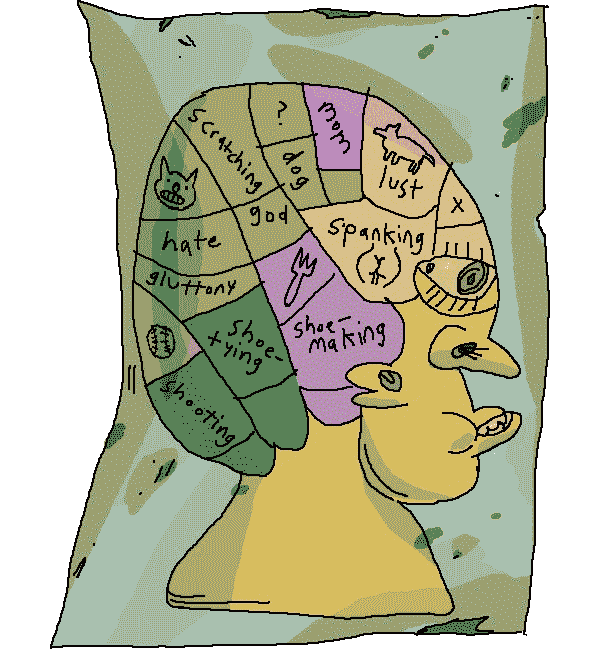 scratching
?
mom
dog
lust
god
x
hate
spanking
gluttony
shoe-
tying
shoe-
making
shooting